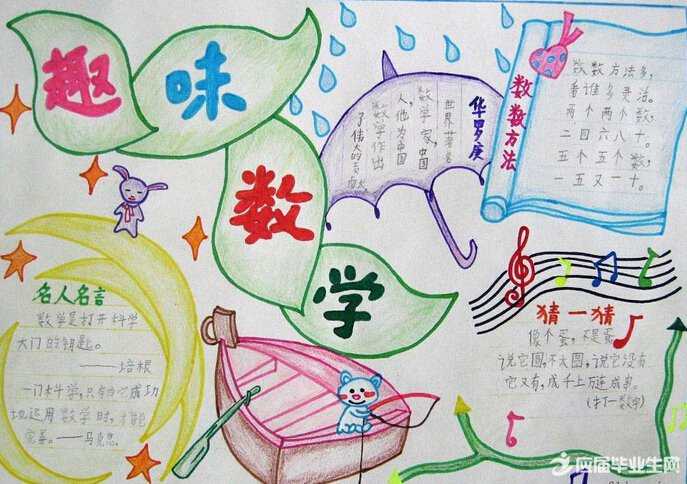 趣味数学
华罗庚
世界著名
数学家,中国
人,他为中国
数学作出
了伟大的贡献
数数方法
数数方法多,
看谁多灵活。
两个两个数:
二四六八十。
五个五个数;
一五又一十。
名人名言
数学是打开科学
大门的钥匙。
——培根
一门科学,只有当它成功
地运用数学时,才能
完善。——马克思
猜一猜
像个蛋,不是蛋
说它圆,不太圆,说它没有
它又有,成千上万连成串。
(打一数字)
应届毕业生网